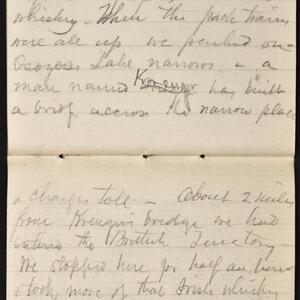 whiskey. When the pack trains
were all up we pushed on -
Osoyoos Lake narrows - a
man named Krenger has built
a bridg accross the narrow place
& charges toll - About 2 miles
from Krenger's bridge we had
entered the British Teretory -
We stopped here for half an hour
& took more of that Irish whiskey